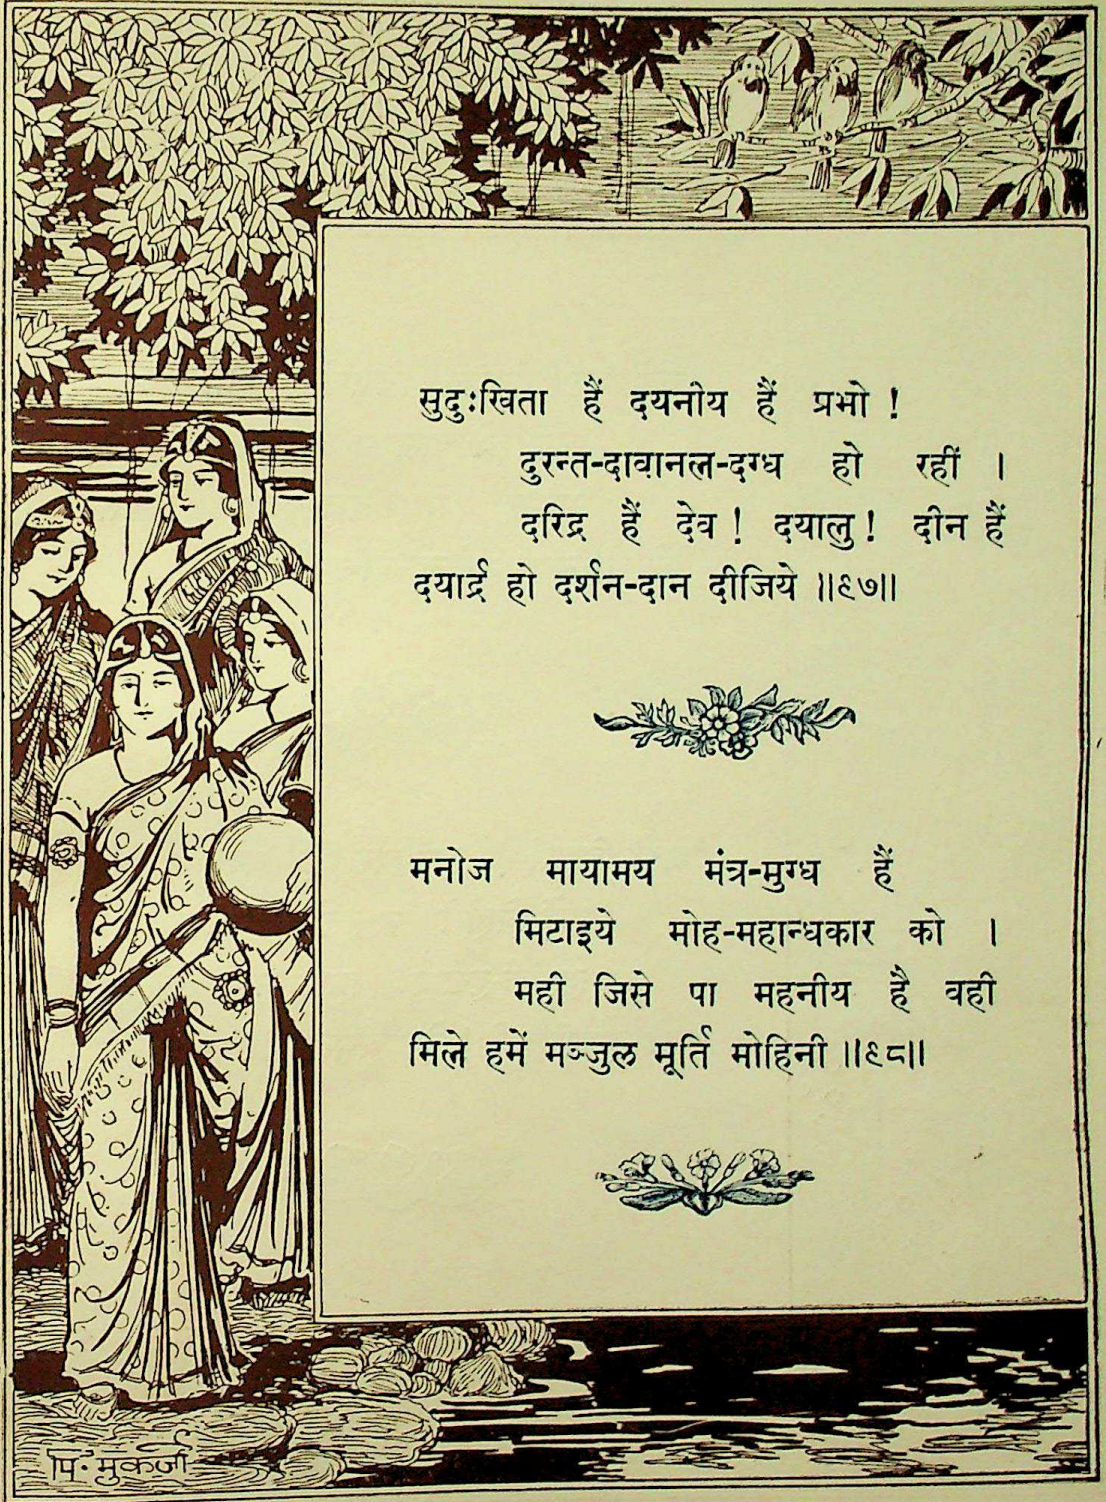 सुदुःखिता हैं दयनीय हैं प्रभो !
दुरन्त-दावानल-दग्ध हो रहीं ।
दरिद्र हैं देव ! दयालु ! दीन हैं
दयार्द्र हो दर्शन-दान दीजिये ॥९७॥
मनोज मायामय मंत्र-मुग्ध हैं
मिटाइये मोह-महान्धकार को ।
मही जिसे पा महनीय है वही
मिले हमें मञ्जुल मूर्ति मोहिनी ॥९८॥
पि. मुकर्जी